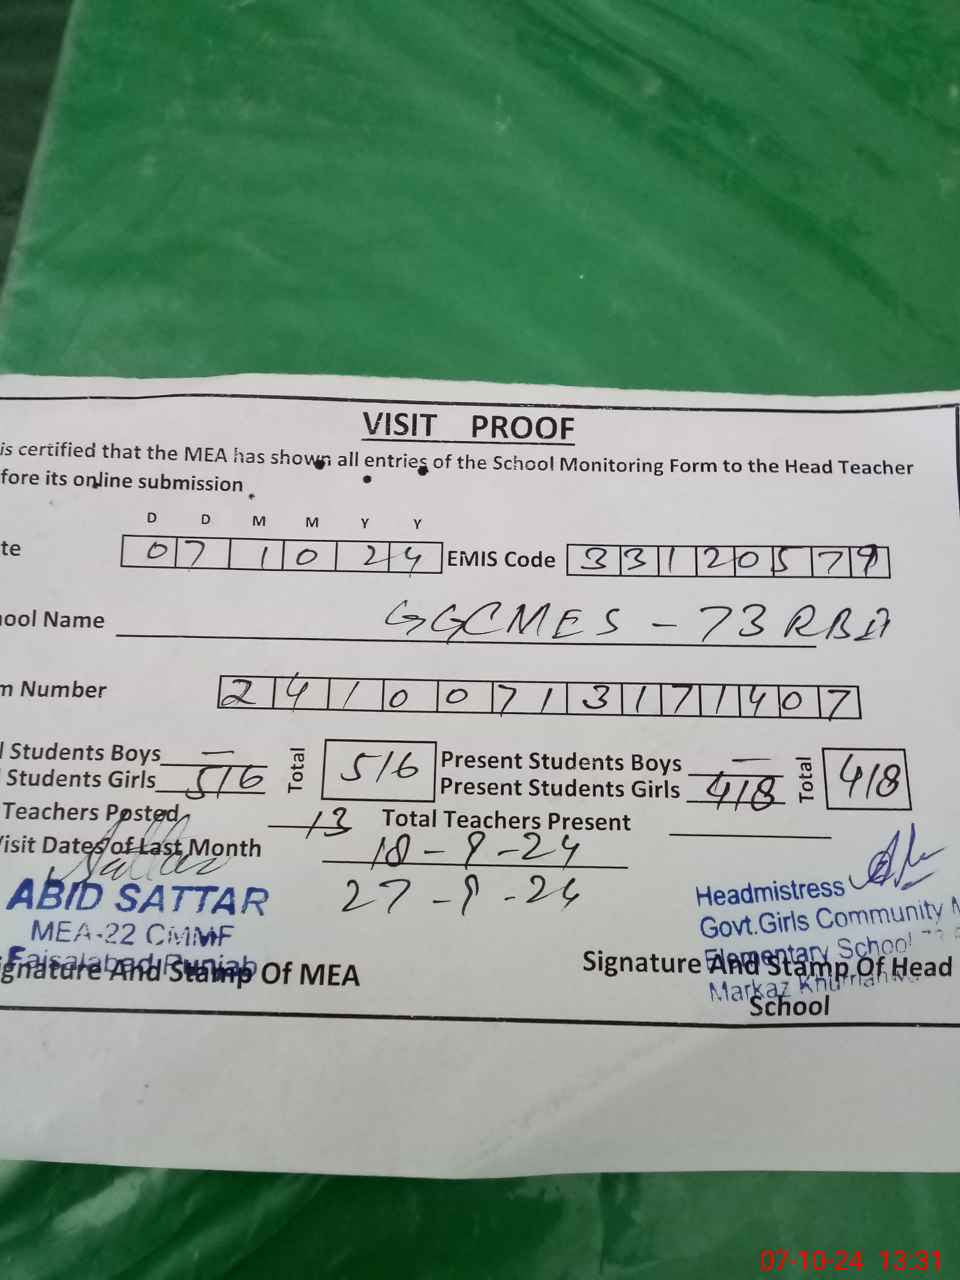 VISIT PROOF
is certified that the MEA has shown all entries of the School Monitoring Form to the Head Teacher
fore its online submission
D D M M Y Y
te 07 10 24 EMIS Code 33120579
ool Name GGCMES - 73 RBA
m Number 24100713171407
l Students Boys — Total 516 Present Students Boys — Total 418
Students Girls 516 Present Students Girls 418
Teachers Posted 13 Total Teachers Present
isit Dates of Last Month 18-9-24
27-9-24
ABID SATTAR
MEA-22 CMMF
Faisalabad Punjab
gnature And Stamp Of MEA
Headmistress
Govt.Girls Community M
Elementary School
Markaz
Signature And Stamp Of Head
School
07-10-24 13:31